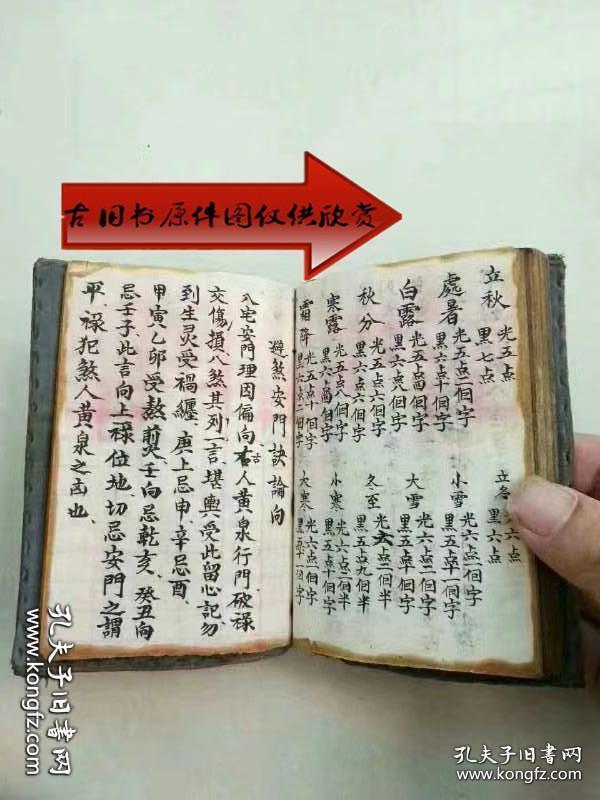 古旧书原件图仅供欣赏
立秋 光五点 黑七点
處暑 光五点一個字 黑六点十個字
白露 光五点四個字 黑六点八個字
秋分 光五点六個字 黑六点六個字
寒露 光五点八個字 黑六点四個字
霜降 光五点十個字 黑六点二個字
立冬 六点 黑六点
小雪 光六点一個字 黑五点十一個字
大雪 光六点二個字 黑五点十個字
冬至 光六点二個半 黑五点九個半
小寒 光六点二個半 黑五点十個字
大寒 光六点一個字 黑五点十一個字
避煞安門訣論向
八宅安門理因偏向古人黄泉行門破禄
交傷損八煞其列一言堪輿受此留心記勿
到生灵受禍纏庚上忌申辛忌酉
甲寅乙卯受熬煎壬向忌乾亥癸丑向
忌壬子此言向上禄位地切忌安門之謂
平禄犯煞人黄泉之凶也
孔夫子旧书网
www.kongfz.com
孔夫子旧书网
www.kongfz.com